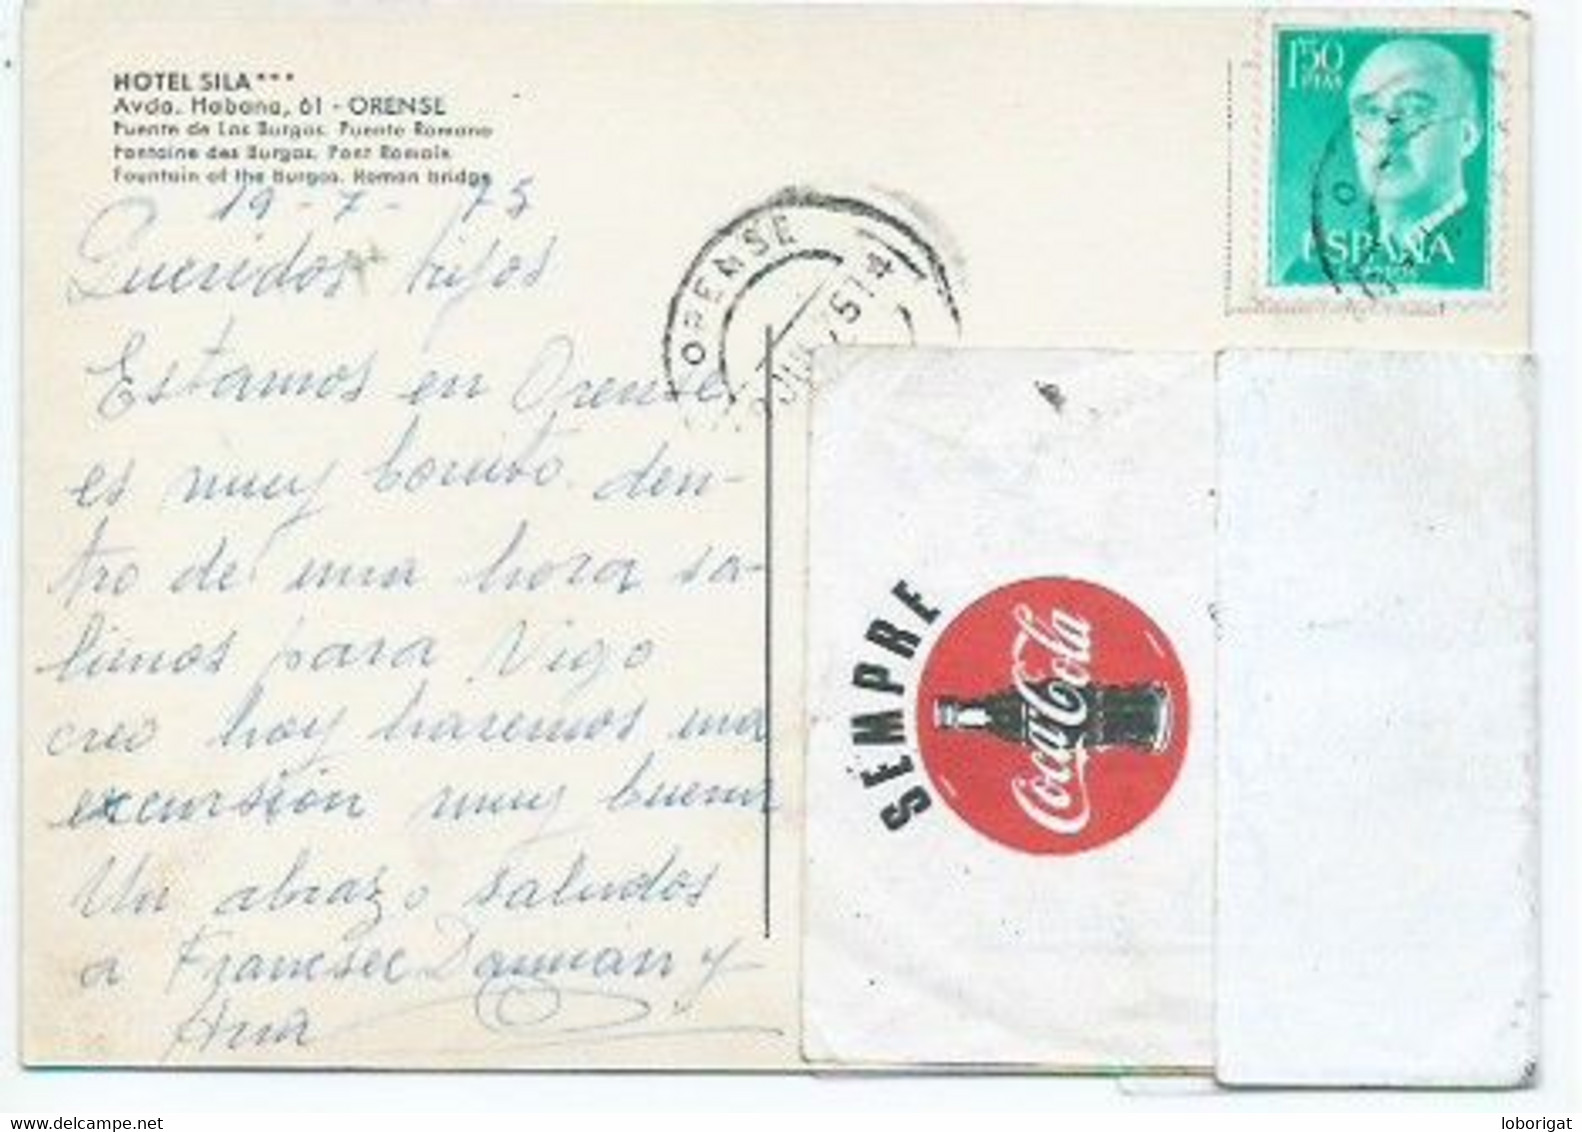 HOTEL SILA***
Avda. Habana, 61 - ORENSE
Fuente de Las Burgas. Puente Romano
Fontaine des Burgas. Pont Romain
Fountain of the Burgas. Roman bridge
19-7-75
Queridos hijos
Estamos en Orense
es muy bonito. den-
tro de una hora sa-
limos para Vigo
creo hoy haremos una
excursión muy buena
Un abrazo saludos
a Francsec Damian y
Ana
ORENSE
1'50
PTAS
ESPAÑA
SEMPRE
Coca-Cola
loborigat